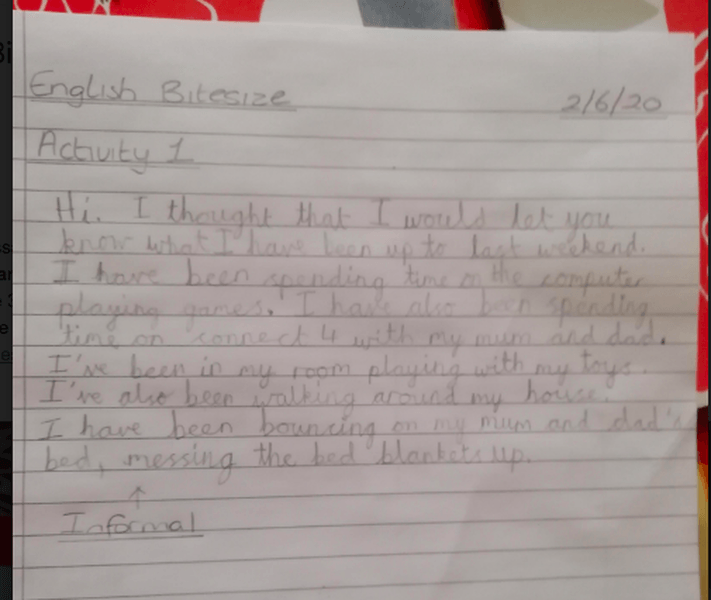 English Bitesize 2/6/20
Activity 1
Hi. I thought that I would let you
know what I have been up to last weekend.
I have been spending time on the computer
playing games. I have also been spending
time on connect 4 with my mum and dad.
I've been in my room playing with my toys.
I've also been walking around my house.
I have been bouncing on my mum and dad's
bed, messing the bed blankets up.
↑
Informal